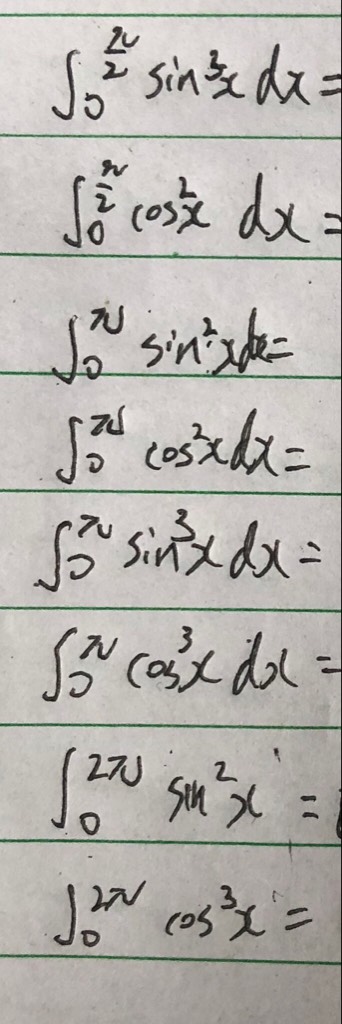 ∫₀^{π/2} sin³x dx =
∫₀^{π/2} cos²x dx =
∫₀^π sin²x dx =
∫₀^π cos²x dx =
∫₀^π sin³x dx =
∫₀^π cos³x dx =
∫₀^{2π} sin²x =
∫₀^{2π} cos³x =